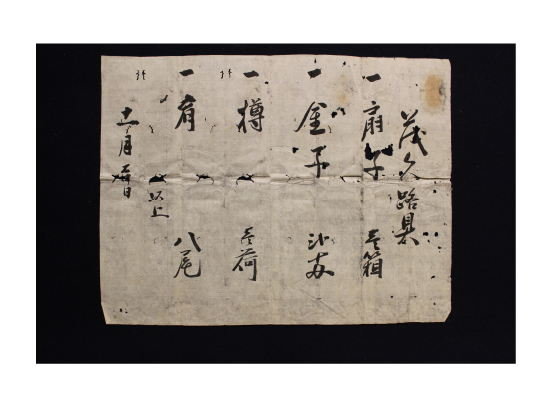 茂久路具
一扇子 壱箱
一金子
一樽 壱荷
一肴 八尾
以上
十一月